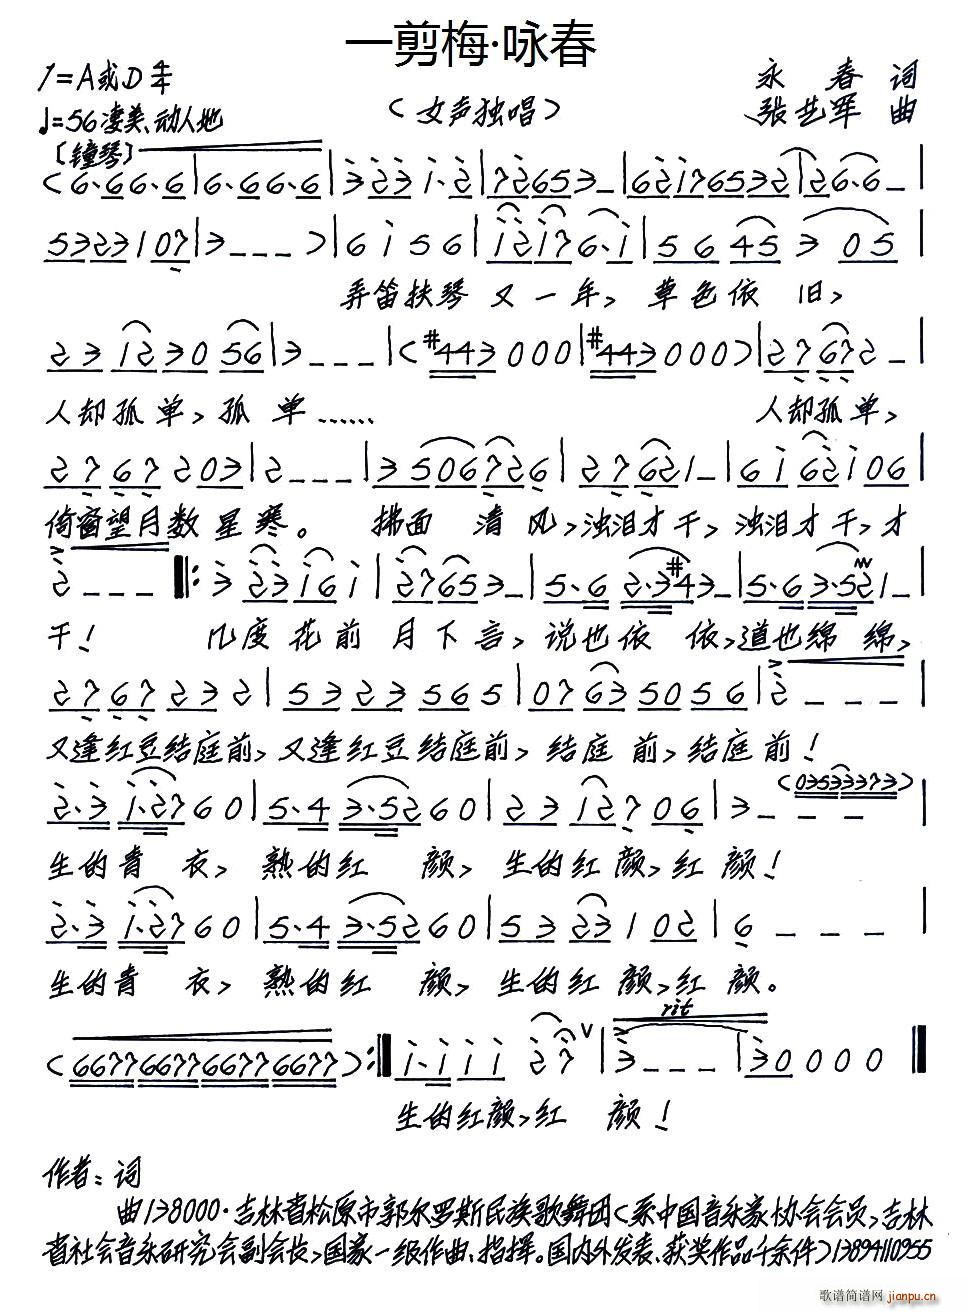 一剪梅·咏春
1=A或D 4/4
永 春 词
♩=56 凄美、动人地
(女声独唱)
张艺军 曲
[钟琴]
(6·66·6|6·66·6|3233 1·2|727653–|6217653 2|26·6–|
5323107|3–––)|6 1 5 6|12176·1|5 6 45 3 05|
弄笛抚琴又一年, 草色依 旧,
23 1230 56|3–––|(#443000|#443000)|27672–|
人却孤单, 孤 单…… 人却孤单,
2767203|2–––|3506726|27621–|6162106|
倚窗望月数星寒。 拂面 清风,浊泪才干,浊泪才干,才
2––– ‖: 3 23161|27653–|5·6 2·3#43–|5·63·521–|
干! 几度花前月下言, 说也依 依,道也绵 绵,
2767232|5323565|07635056|2–––|
又逢红豆结庭前, 又逢红豆结庭前, 结庭 前, 结庭前!
2·3 1·2760|5·4 3·5260|23 127 06|3––– (03533373)|
生的青 衣, 熟的红 颜, 生的红颜,红 颜!
2·3 1·2760|5·4 3·5260|53 231 02|6–––|
生的青 衣, 熟的红 颜, 生的红颜,红 颜。
rit
(6677667766776677):‖ 1·1 1 1 2 7 ∨|3–––|30000‖
生的红颜,红 颜!
作者:词
曲138000·吉林省松原市郭尔罗斯民族歌舞团(系中国音乐家协会会员,吉林
省社会音乐研究会副会长,国家一级作曲、指挥。国内外发表、获奖作品千余件)13894110955
歌谱简谱网
jianpu.cn